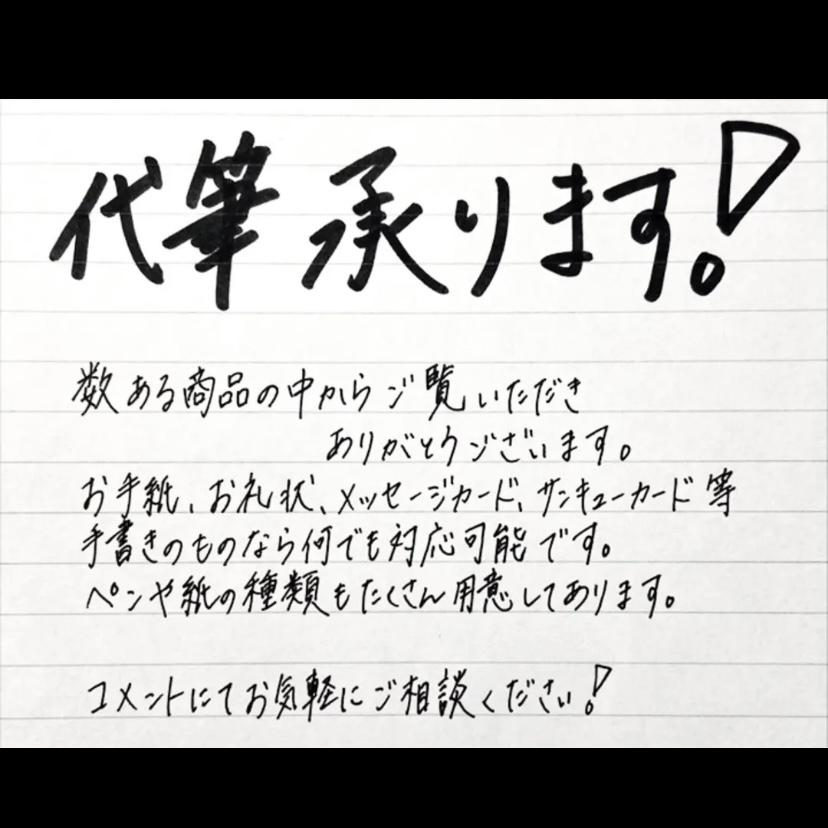 代筆承ります!
数ある商品の中からご覧いただき
ありがとうございます。
お手紙、お礼状、メッセージカード、サンキューカード等
手書きのものなら何でも対応可能です。
ペンや紙の種類もたくさん用意してあります。
コメントにてお気軽にご相談ください!